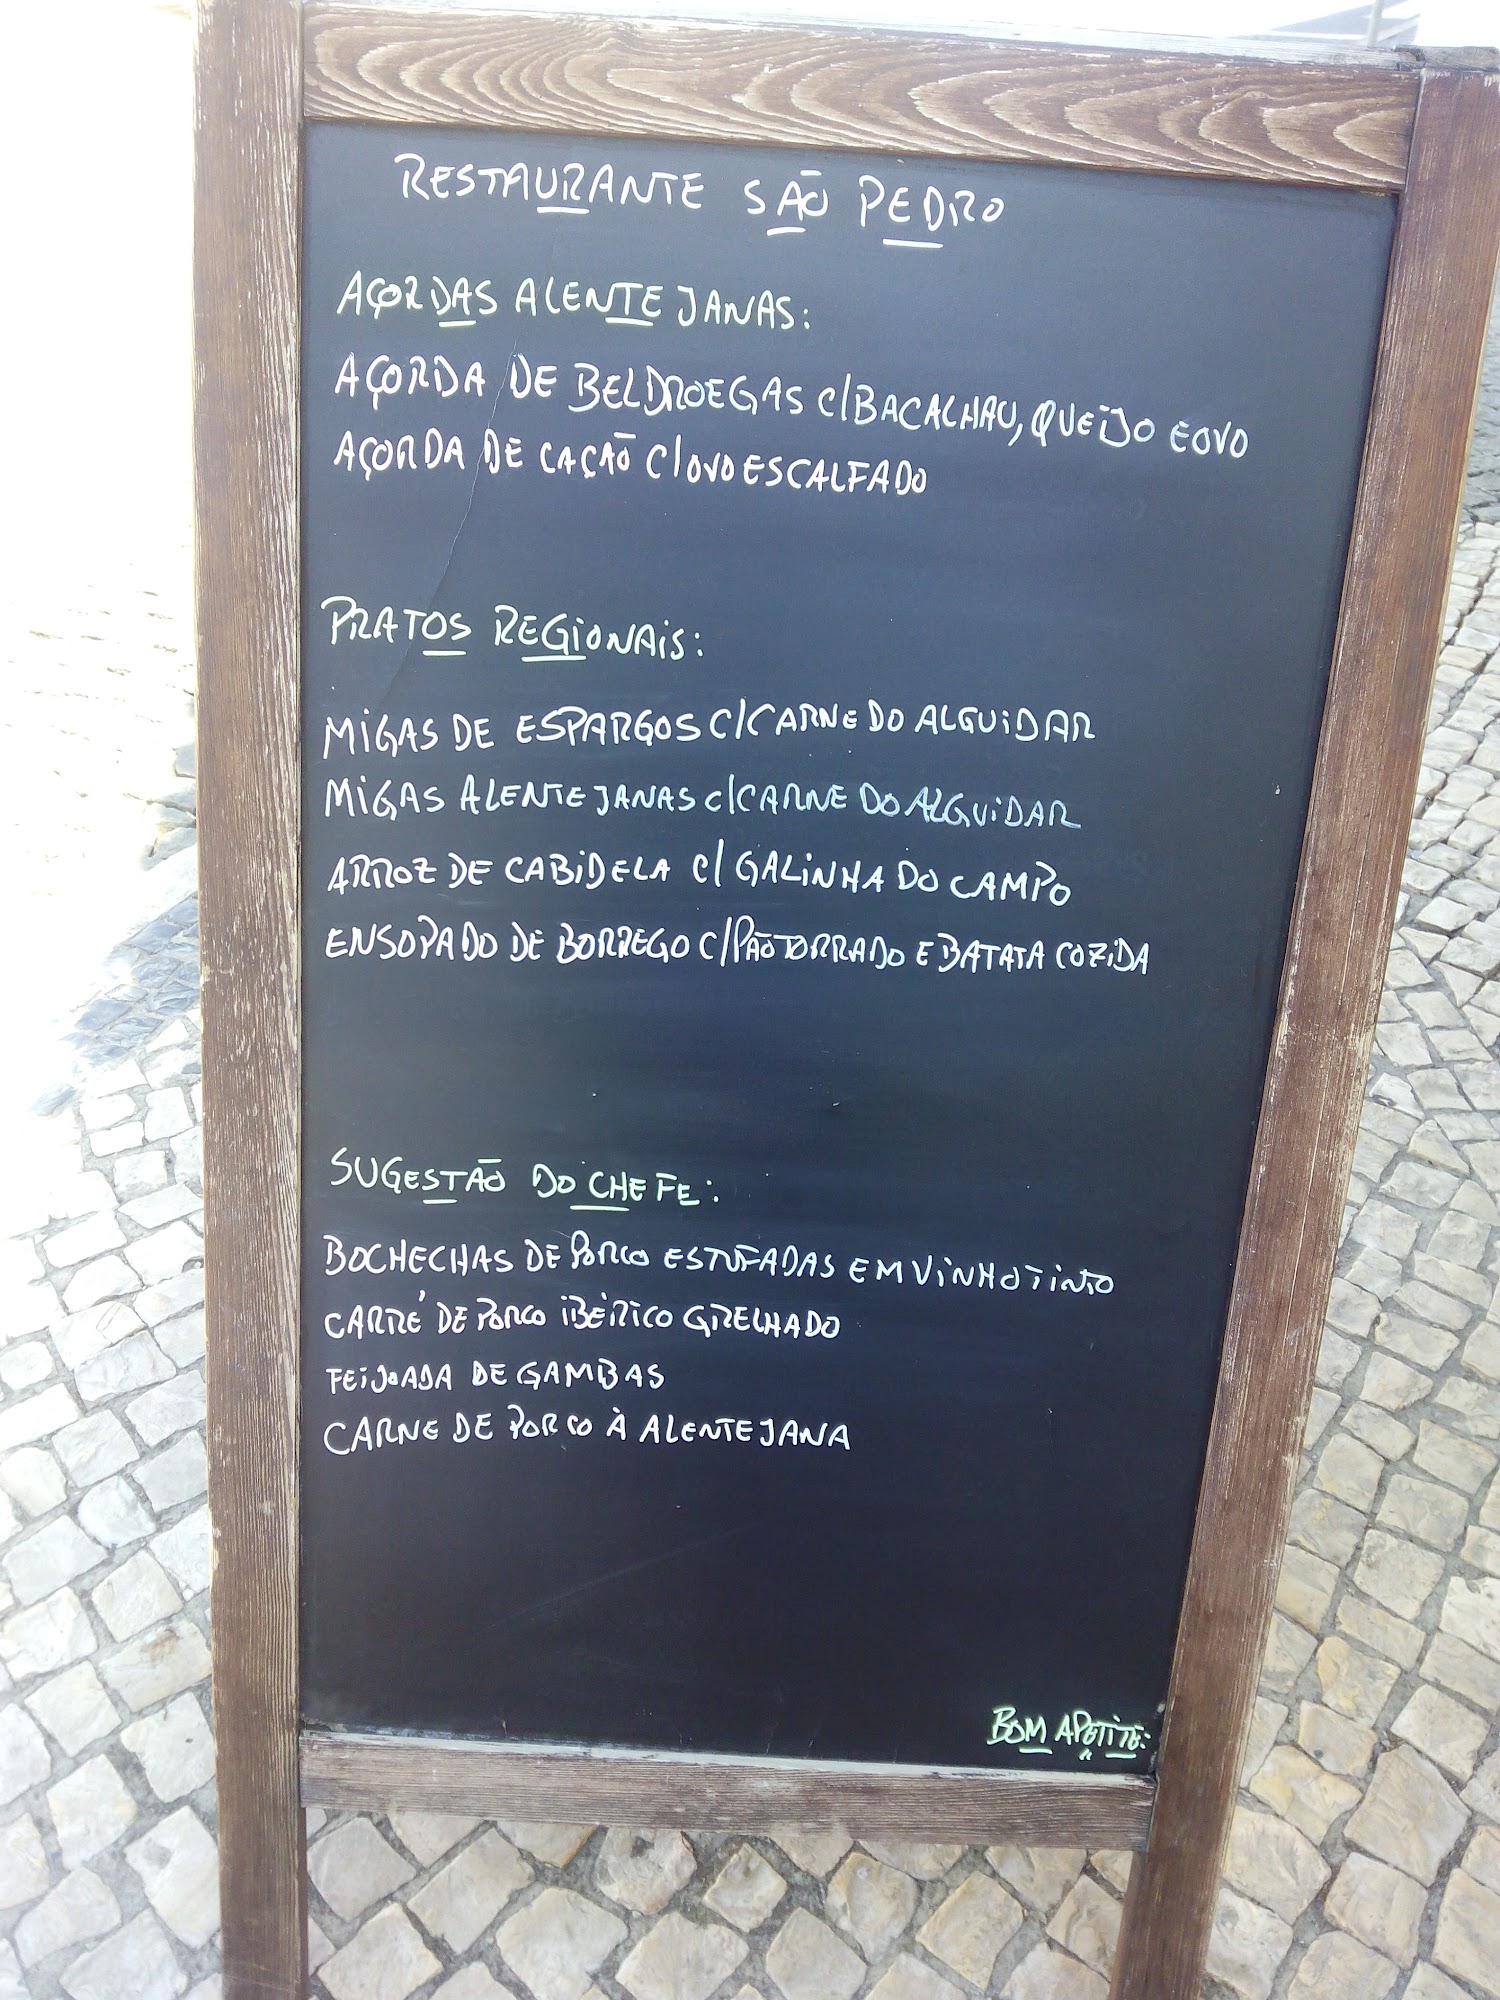 RESTAURANTE SÃO PEDRO
AÇORDAS ALENTEJANAS:
AÇORDA DE BELDROEGAS C/BACALHAU, QUEIJO E OVO
AÇORDA DE CAÇÃO C/OVO ESCALFADO
PRATOS REGIONAIS:
MIGAS DE ESPARGOS C/CARNE DO ALGUIDAR
MIGAS ALENTEJANAS C/CARNE DO ALGUIDAR
ARROZ DE CABIDELA C/ GALINHA DO CAMPO
ENSOPADO DE BORREGO C/PÃO TORRADO E BATATA COZIDA
SUGESTÃO DO CHEFE:
BOCHECHAS DE PORCO ESTUFADAS EM VINHO TINTO
CARRÉ DE PORCO IBÉRICO GRELHADO
FEIJOADA DE GAMBAS
CARNE DE PORCO À ALENTEJANA
BOM APETITE: